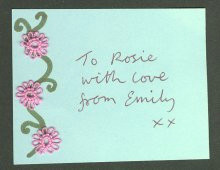 To Rosie
with love
from Emily
xx